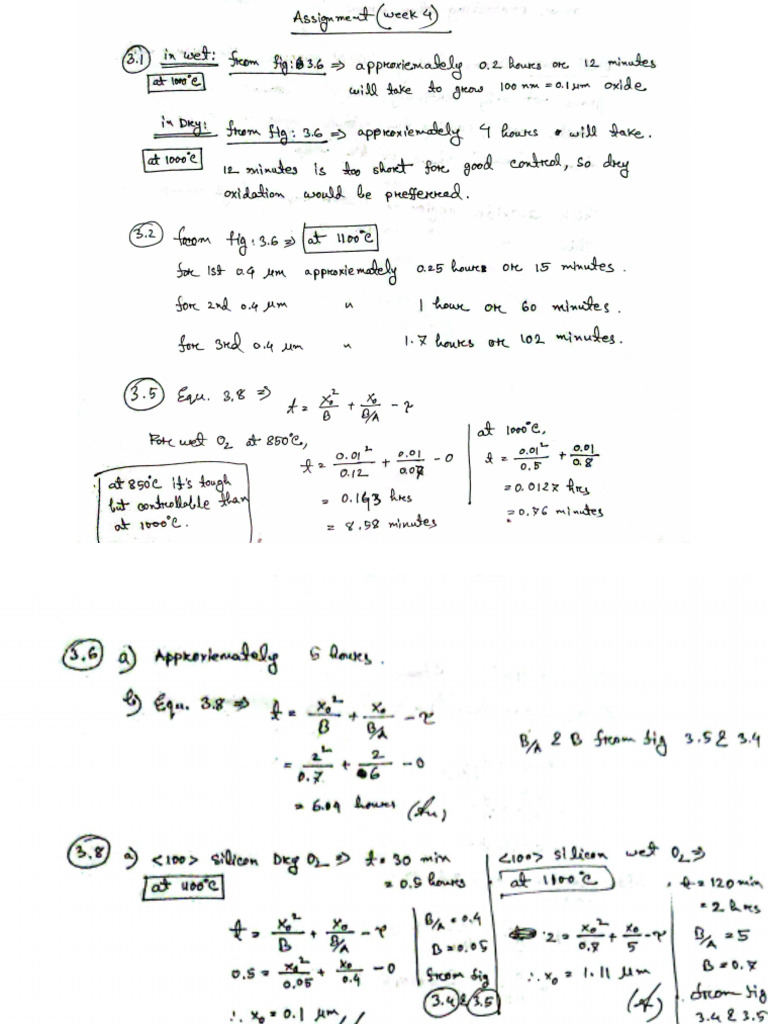 Assignment (week 4)
3.1 in wet: from fig: 3.6 ⇒ approxiemately 0.2 hours or 12 minutes
at 1000°C will take to grow 100 nm = 0.1 μm oxide
in Dry: from fig: 3.6 ⇒ approxiemately 4 hours will take.
at 1000°C 12 minutes is too short for good control, so dry
oxidation would be prefferred.
3.2 from fig: 3.6 ⇒ at 1100°C
for 1st 0.4 μm approxiemately 0.25 hours or 15 minutes.
for 2nd 0.4 μm " 1 hour or 60 minutes.
for 3rd 0.4 μm " 1.7 hours or 102 minutes.
3.5 Equ. 3.8 ⇒ t = x₀²/B + x₀/B/A - τ
For wet O₂ at 850°C,
t = 0.01²/0.12 + 0.01/0.07 - 0
= 0.143 hrs
= 8.58 minutes
at 1000°C,
t = 0.01²/0.5 + 0.01/0.8
= 0.0127 hrs
= 0.76 minutes
at 850°C it's tough
but controllable than
at 1000°C.
3.6 a) Approxiemately 6 hours.
b) Equ. 3.8 ⇒ t = x₀²/B + x₀/B/A - τ
= 2²/0.7 + 2/6 - 0
= 6.04 hours (An)
B/A & B from fig 3.5 & 3.4
3.8 a) <100> silicon Dry O₂ ⇒ t = 30 min
at 1100°C = 0.5 hours
t = x₀²/B + x₀/B/A - τ
0.5 = x₀²/0.05 + x₀/0.4 - 0
∴ x₀ = 0.1 μm
B/A = 0.4
B = 0.05
from fig
3.4 & 3.5
<100> silicon wet O₂ ⇒
at 1100°C
t = 120 min
= 2 hrs
2 = x₀²/0.7 + x₀/5 - τ
∴ x₀ = 1.11 μm
B/A = 5
B = 0.7
from fig
3.4 & 3.5